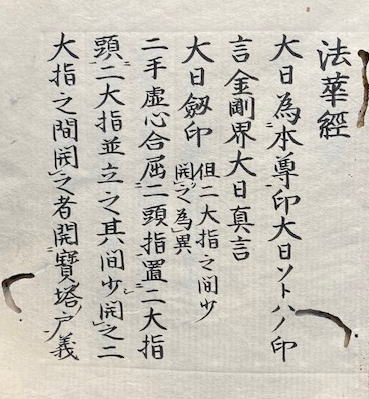 法華經
大日為本尊印大日ソトハノ印
言金剛界大日真言
大日劔印 但二大指之間少開之為異
二手虚心合屈二頭指置二大指
頭二大指並立之其間少開之二
大指之間開之者開寶塔戸義